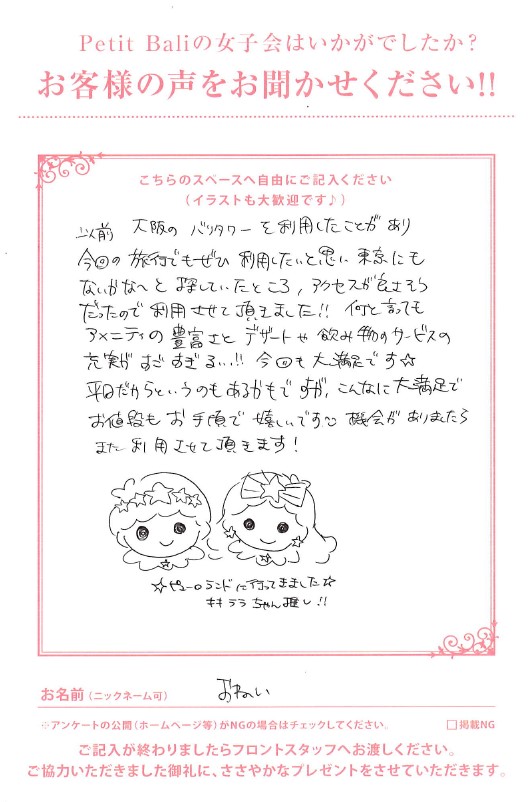 Petit Baliの女子会はいかがでしたか？
お客様の声をお聞かせください!!
こちらのスペースへ自由にご記入ください
（イラストも大歓迎です♪）
以前 大阪の バリタワー を利用したことがあり
今回の 旅行でもぜひ 利用したいと思い 東京にも
ないかな〜と 探していたところ, アクセスが良さそう
だったので 利用させて頂きました!! 何と言っても
アメニティの 豊富さと デザートや 飲み物のサービスの
充実が すごすぎるぃ!! 今回も 大満足です☆
平日だからというのもあるかもですが, こんなに大満足で
お値段も お手頃で 嬉しいです 機会が ありましたら
また 利用させて頂きます!
☆ピューロランドに行ってきました☆
キキララちゃん推し!!
お名前（ニックネーム可） おねい
※アンケートの公開（ホームページ等）がNGの場合はチェックしてください。 □掲載NG
ご記入が終わりましたらフロントスタッフへお渡しください。
ご協力いただきました御礼に、ささやかなプレゼントをさせていただきます。